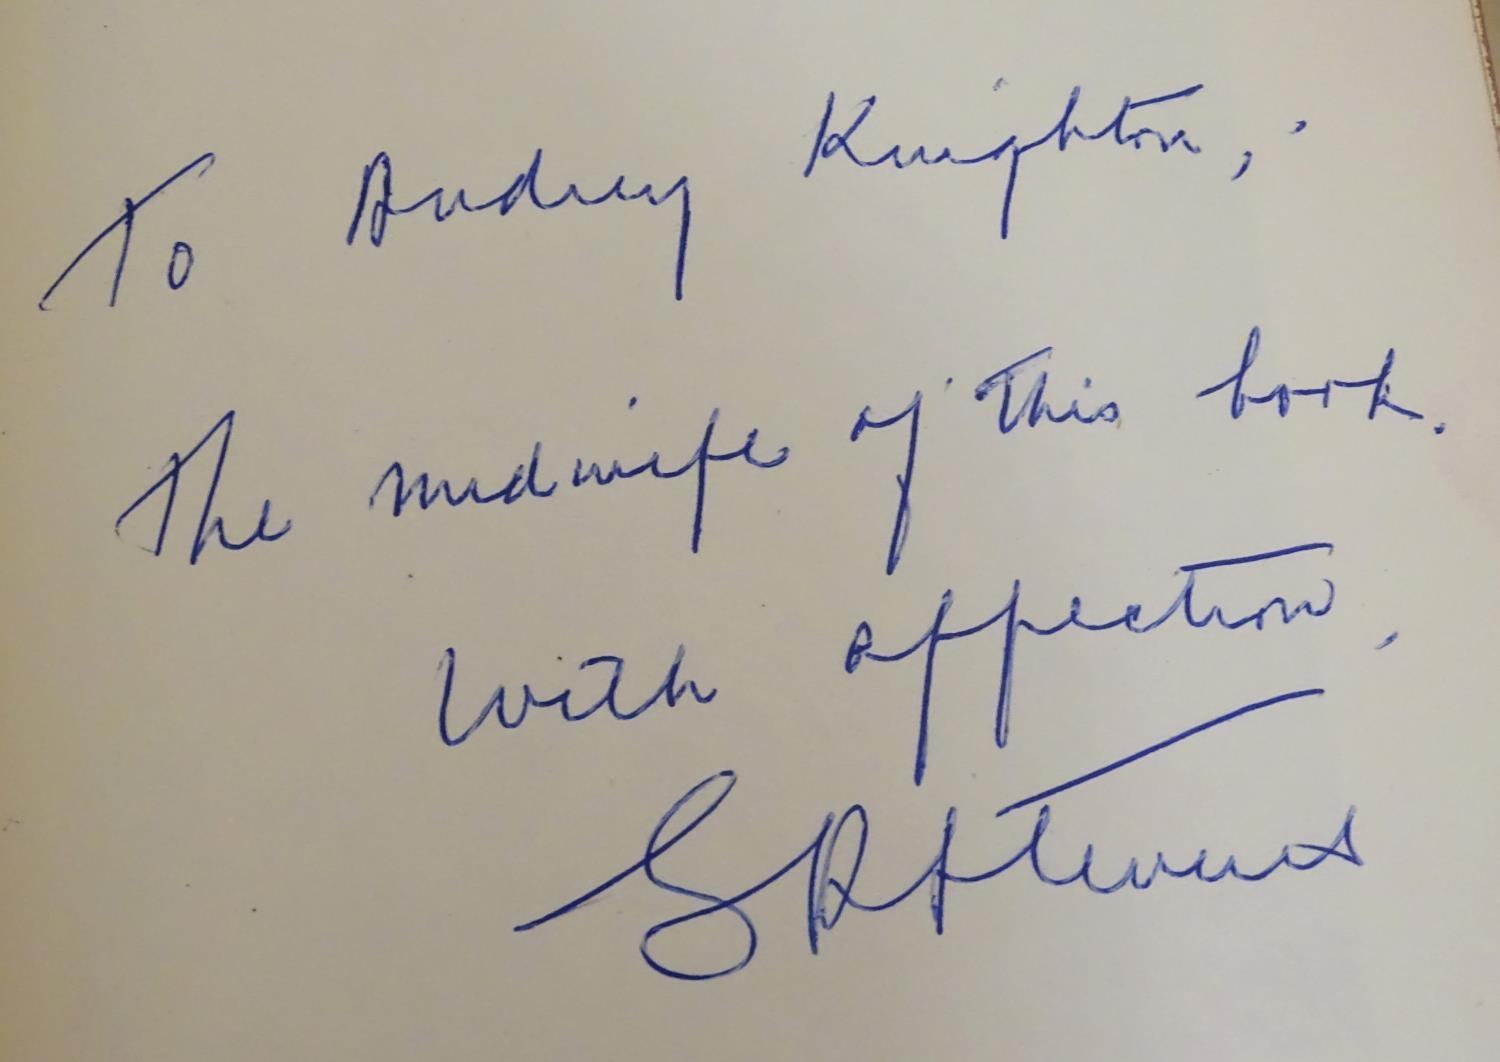 To Audrey Knighton,
The midwife of this book.
With affection,
S R Stevens